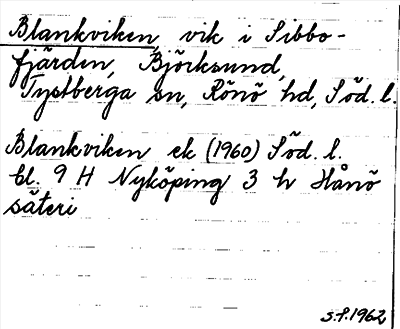 Blankviken, vik i Sibbo-
fjärden, Björksund,
Tystberga sn, Rönö hd, Söd. l.
Blankviken ek (1960) Söd. l.
bl. 9 H Nyköping 3 h Hånö
säteri
S.P.1962